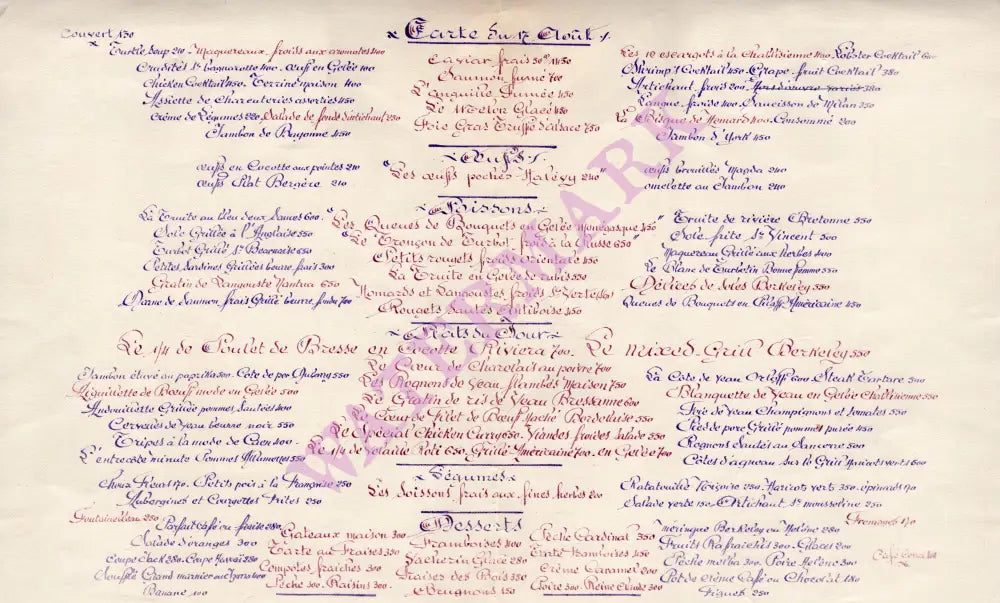 Couvert 150
Carte du 17 Août
Turtle soup 210 - Maquereaux frais aux aromates 400
Crudités St Bagnarotte 400 - œufs en Gelée 100
Chicken Cocktail 450 - Terrine maison 400
Assiette de Charcuteries assorties 450
Crème de Légumes 220 - Salade de fonds d'artichaut 250
Jambon de Bayonne 450
Caviar frais 50gr 1150
Saumon fumé 700
L'anguille Fumée 450
Le Melon Glacé 450
Foie Gras Truffé d'Alsace 750
Les 10 escargots à la Chablisienne 400 - Lobster Cocktail
Shrimp's Cocktail 450 - Grape-fruit Cocktail 350
Artichaut frais 200 - Hors d'œuvre variés 380
Langue froide 400 - Saucisson de Milan 350
La Bisque de Homard 400 - Consommé 200
Jambon d'York 450
Œufs
œufs en Cocotte aux pointes 240
œufs Plat Bergère 240
"Les œufs pochés Halévy 240"
œufs brouillés Magda 240
omelette au Jambon 240
Poissons
La Truite au bleu deux sauces 600
Sole Grillée à l'Anglaise 550
Turbot Grillé Ss Béarnaise 650
Petites Sardines Grillées beurre frais 300
Gratin de Langouste Nantua 650
Darne de Saumon frais Grillé beurre fondu 700
"Les Queues de Bouquets en Gelée Monégasque 450"
"Le Tronçon de Turbot froid à la Russe 650"
Petits rougets froids orientale 450
La Truite en Gelée de rubis 550
Homards et Langoustes froids Ss Verte
Rougets sautés Antiboise 450
Truite de rivière Bretonne 550
Sole frite St Vincent 500
Maquereau Grillé aux herbes 400
Le Blanc de Turbotin Bonne femme 550
Délices de Soles Berkeley 550
Queues de Bouquets en Pilaff Américaine 450
Plats du Jour
Le 1/4 de Poulet de Bresse en Cocotte Riviera 700 - Le Mixed-Grill Berkeley 550
Jambon étuvé au paprika 500 - Cote de porc 550
Aiguillette de Bœuf mode en Gelée 500
Andouillette Grillée pommes Sautées 400
Cervelles de veau beurre noir 550
Tripes à la mode de Caen 400
L'entrecôte minute Pommes Allumettes 550
Le Cœur de Charolais au poivre 700
Les Rognons de Veau flambés Maison 750
Le Gratin de ris de Veau Bressanne 600
Le Cœur de Filet de Bœuf haché Bordelaise 550
Le Spécial Chicken Curry 650 - Viandes froides Salade 550
Le 1/4 de Volaille Roti 650, Grillé Américaine 700 - en Gelée 700
La Cote de veau Orloff 600 - Steak Tartare 500
Blanquette de Veau en Gelée Chablisienne 550
Foie de veau Champignons et tomates 550
Pieds de porc Grillé pommes purée 450
Rognons Sautés au Sancerre 500
Côtes d'agneau sur le Grill Haricots verts 600
Légumes
Choux fleurs 170 - Petits pois à la Française 250
Aubergines et Courgettes Frites 250
Les Poissons frais aux fines herbes 200
Ratatouille Niçoise 250 - Haricots verts 350 - épinards 170
Salade verte 150 - Artichaut Ss mousseline 250
Desserts
Fontainebleau 250
Parfait café ou fraise 280
Salade d'oranges 300
Coupe Jack 280 - Coupe Hawaï 250
Soufflé Grand marnier
Banane 100
Gateaux maison 300
Tarte aux Fraises 350
Compotes fraiches 300
Pêche 300 - Raisins 300
Framboises 400
Sacherin Glacé 280
Fraises des Bois 350
Brugnons 150
Pêche Cardinal 350
Tarte Framboises 450
Crème Caramel 200
Poire 300 - Reine Claude 300
Cremones 170
Meringue Berkeley ou Hélène 280
Fruits Rafraichis 300 - Glaces 200
Pêche melba 300 - Poire Hélène 300
Pot de crème Café ou Chocolat 180
Figues 250
Café Cona
WATERMARK